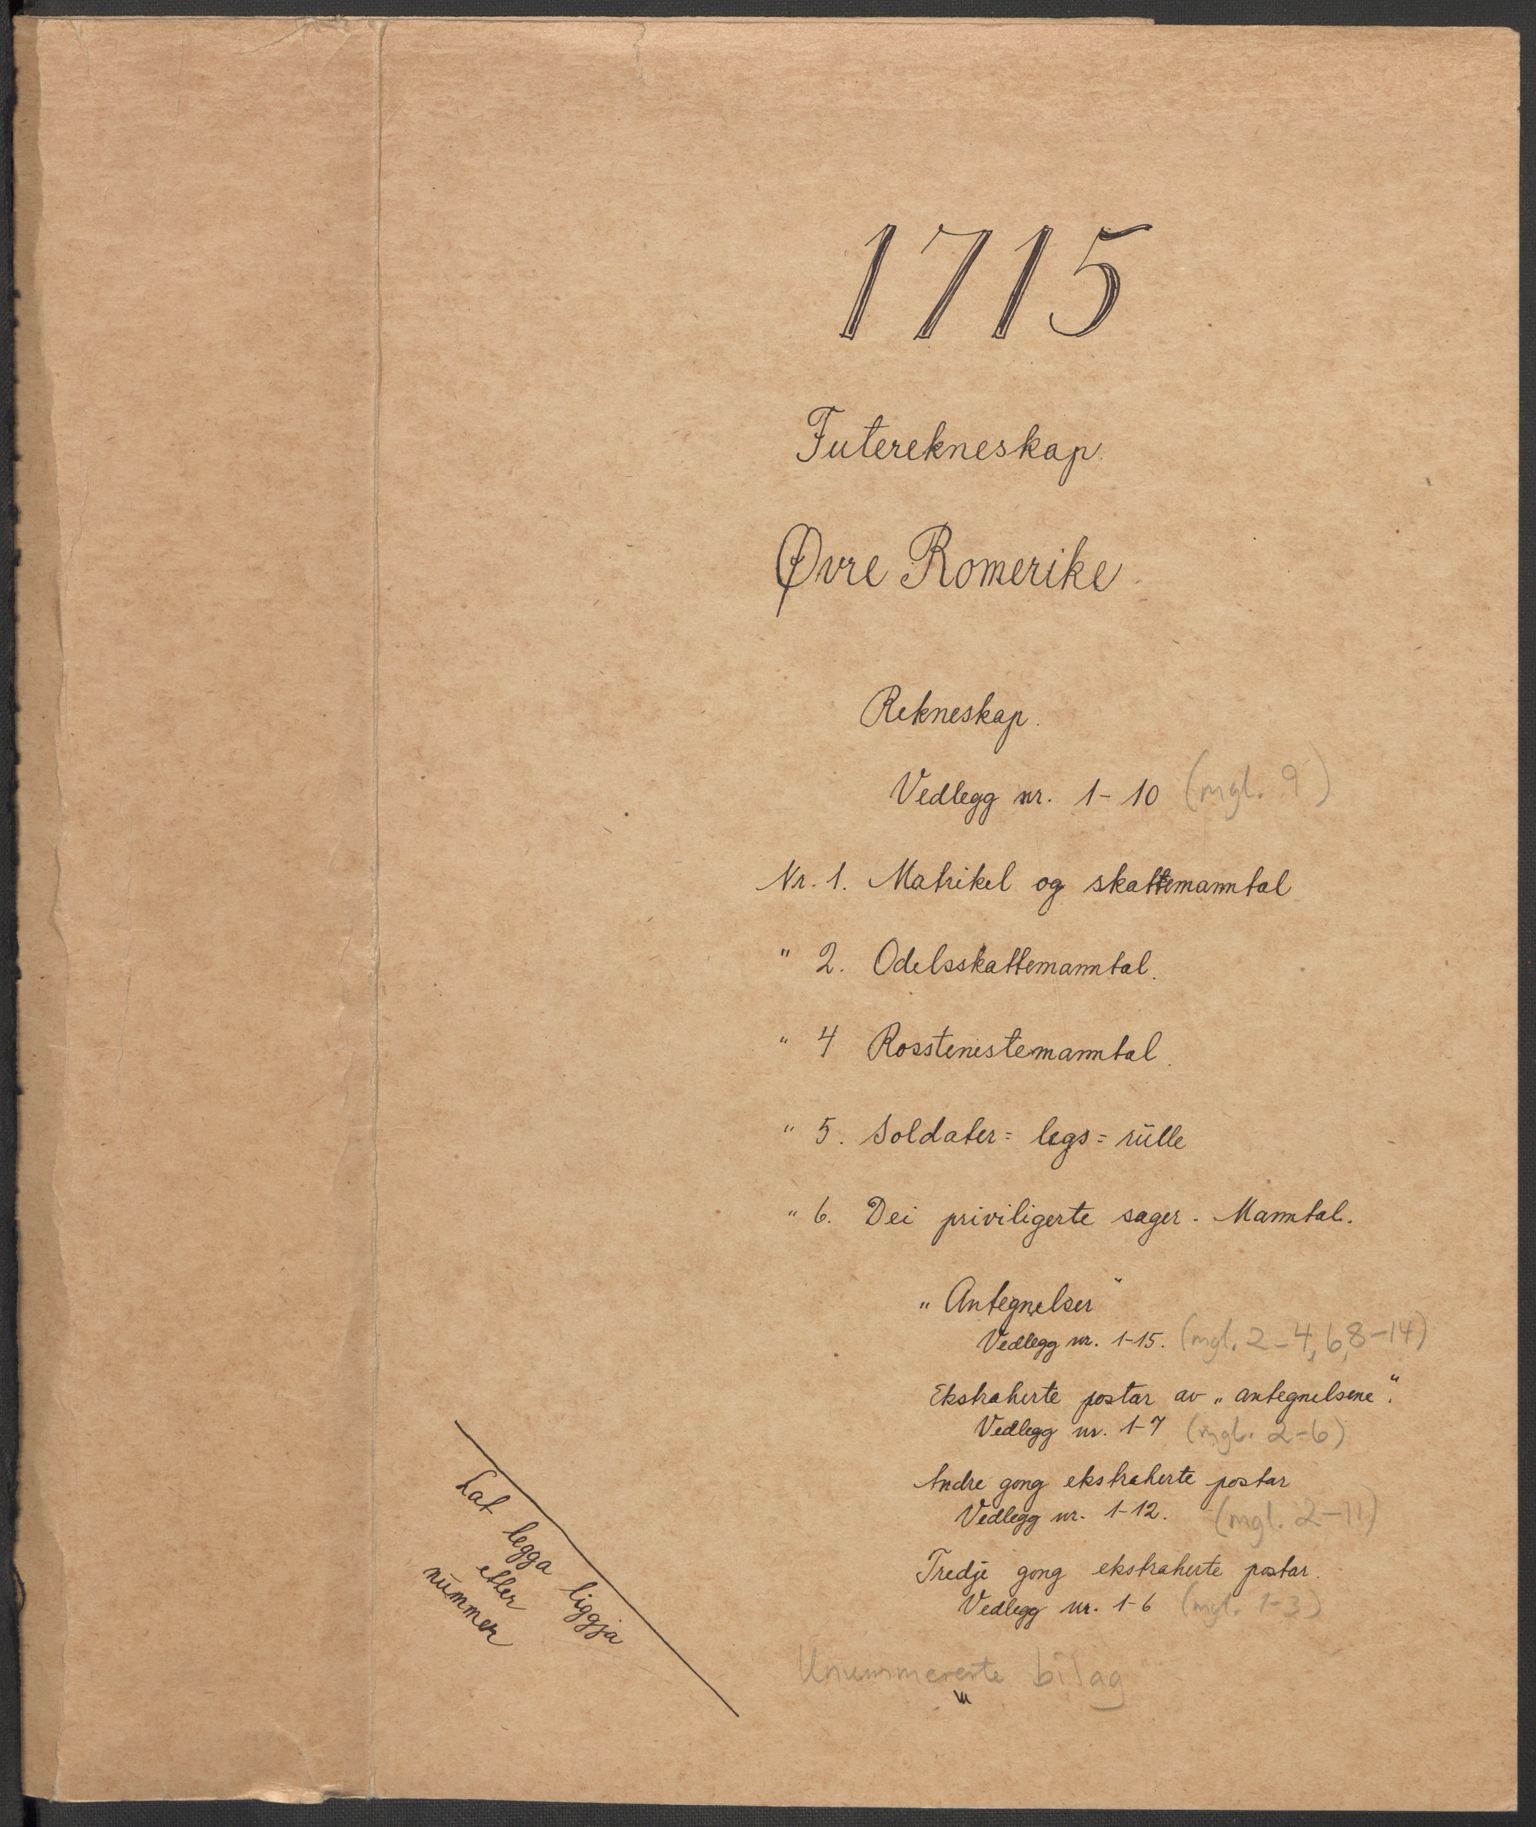 1715
Futerekneskap
Øvre Romerike
Rekneskap.
Vedlegg nr. 1-10 (mgl. 9)
Nr. 1. Matrikel og skattemanntal
" 2. Odelsskattemanntal.
" 4 Rosstenestemanntal.
" 5. Soldater= legs= rülle
" 6. Dei priviligerte sager. Manntal.
„Antegnelser"
Vedlegg nr. 1-15. (mgl. 2-4, 6, 8-14)
Ekstraherte postar av „antegnelsene".
Vedlegg nr. 1-7 (mgl. 2-6)
Andre gong ekstraherte postar
Vedlegg nr. 1-12. (mgl. 2-11)
Tredje gong ekstraherte postar.
Vedlegg nr. 1-6 (mgl. 1-3)
Unummererte bilag
Lat legga liggja
etter
nümmer